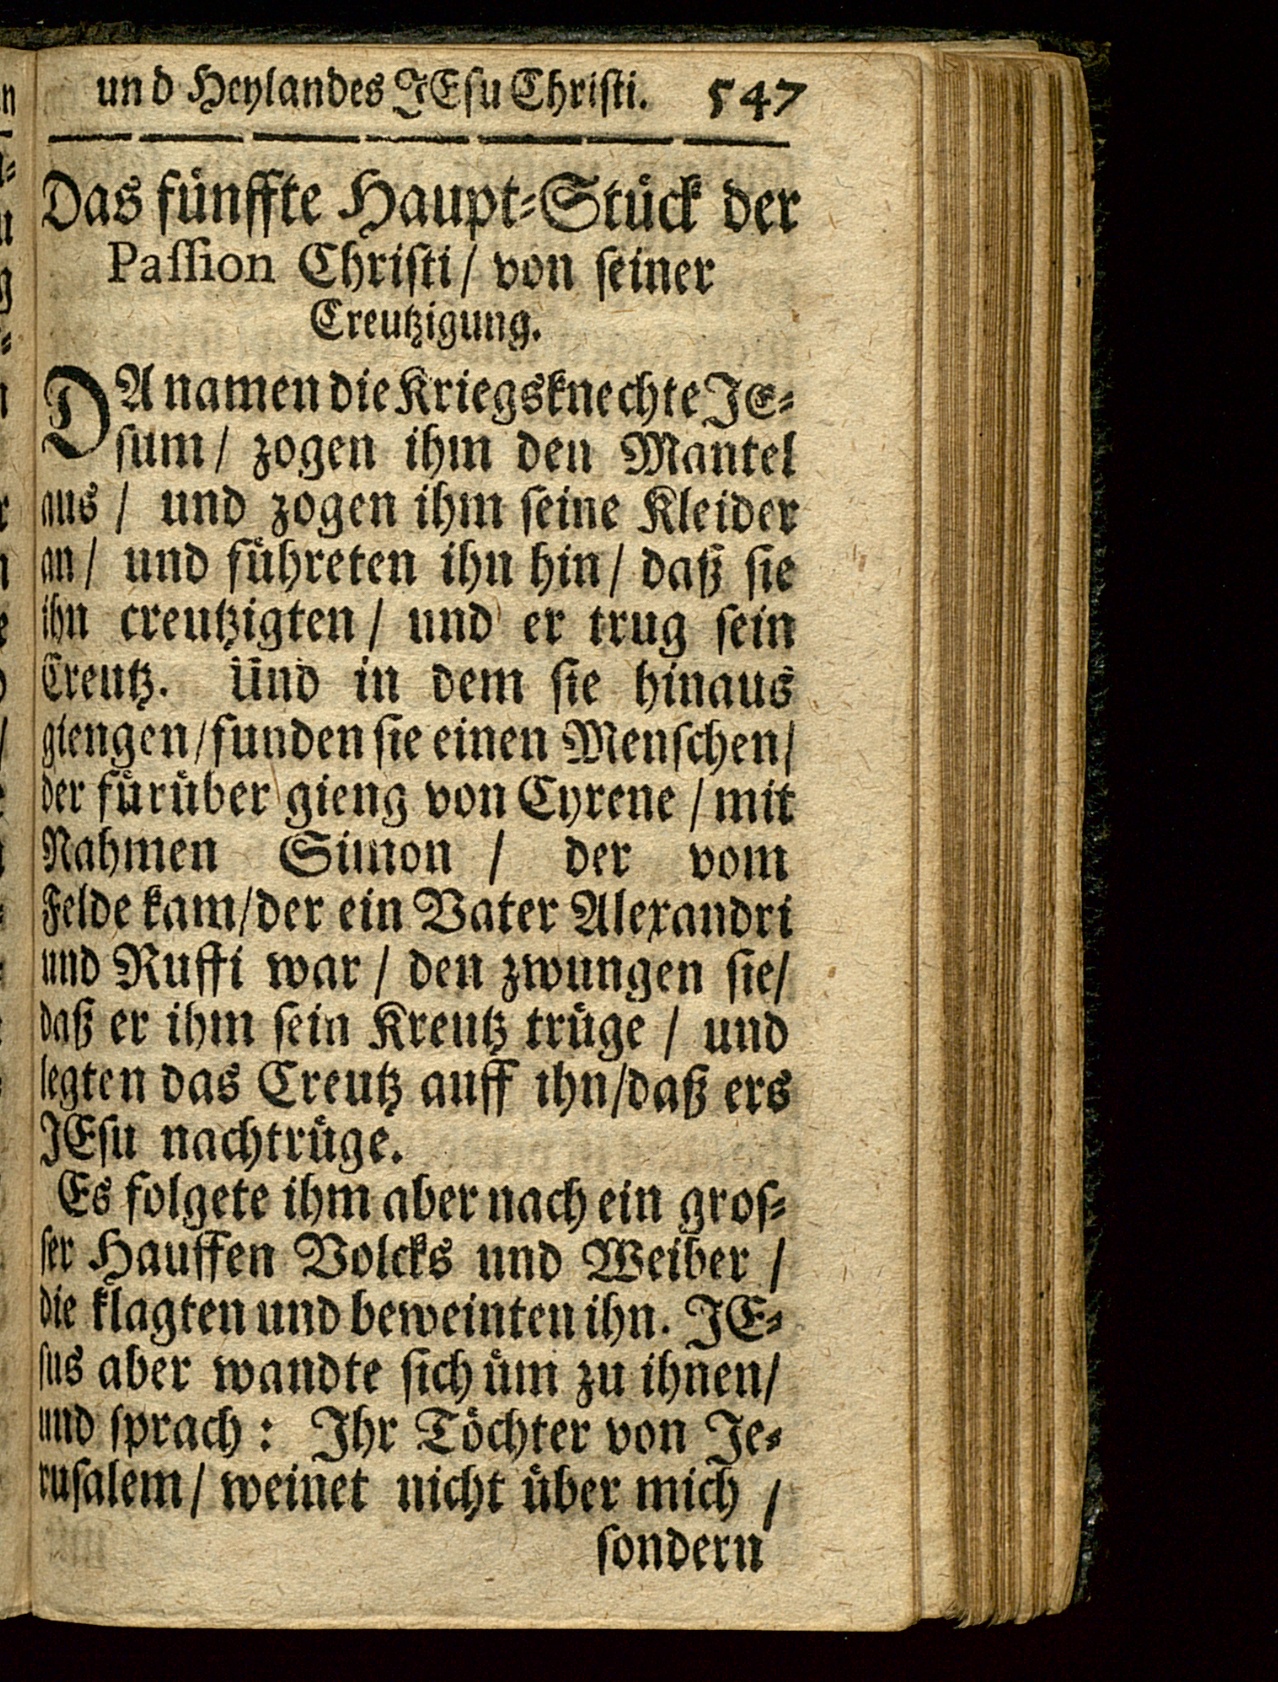 und Heylandes JEsu Christi. 547
Das fünffte Haupt-Stück der
Passion Christi / von seiner
Creutzigung.
DA namen die Kriegsknechte JE-
sum / zogen ihm den Mantel
aus / und zogen ihm seine Kleider
an / und führeten ihn hin / daß sie
ihn creutzigten / und er trug sein
Creutz. Und in dem sie hinaus
giengen / funden sie einen Menschen /
der fürüber gieng von Cyrene / mit
Nahmen Simon / der vom
Felde kam / der ein Vater Alexandri
und Ruffi war / den zwungen sie /
daß er ihm sein Kreutz trüge / und
legten das Creutz auff ihn / daß ers
JEsu nachtrüge.
Es folgete ihm aber nach ein gros-
ser Hauffen Volcks und Weiber /
die klagten und beweinten ihn. JE-
sus aber wandte sich üm zu ihnen /
und sprach : Ihr Töchter von Je-
rusalem / weinet nicht über mich /
sondern